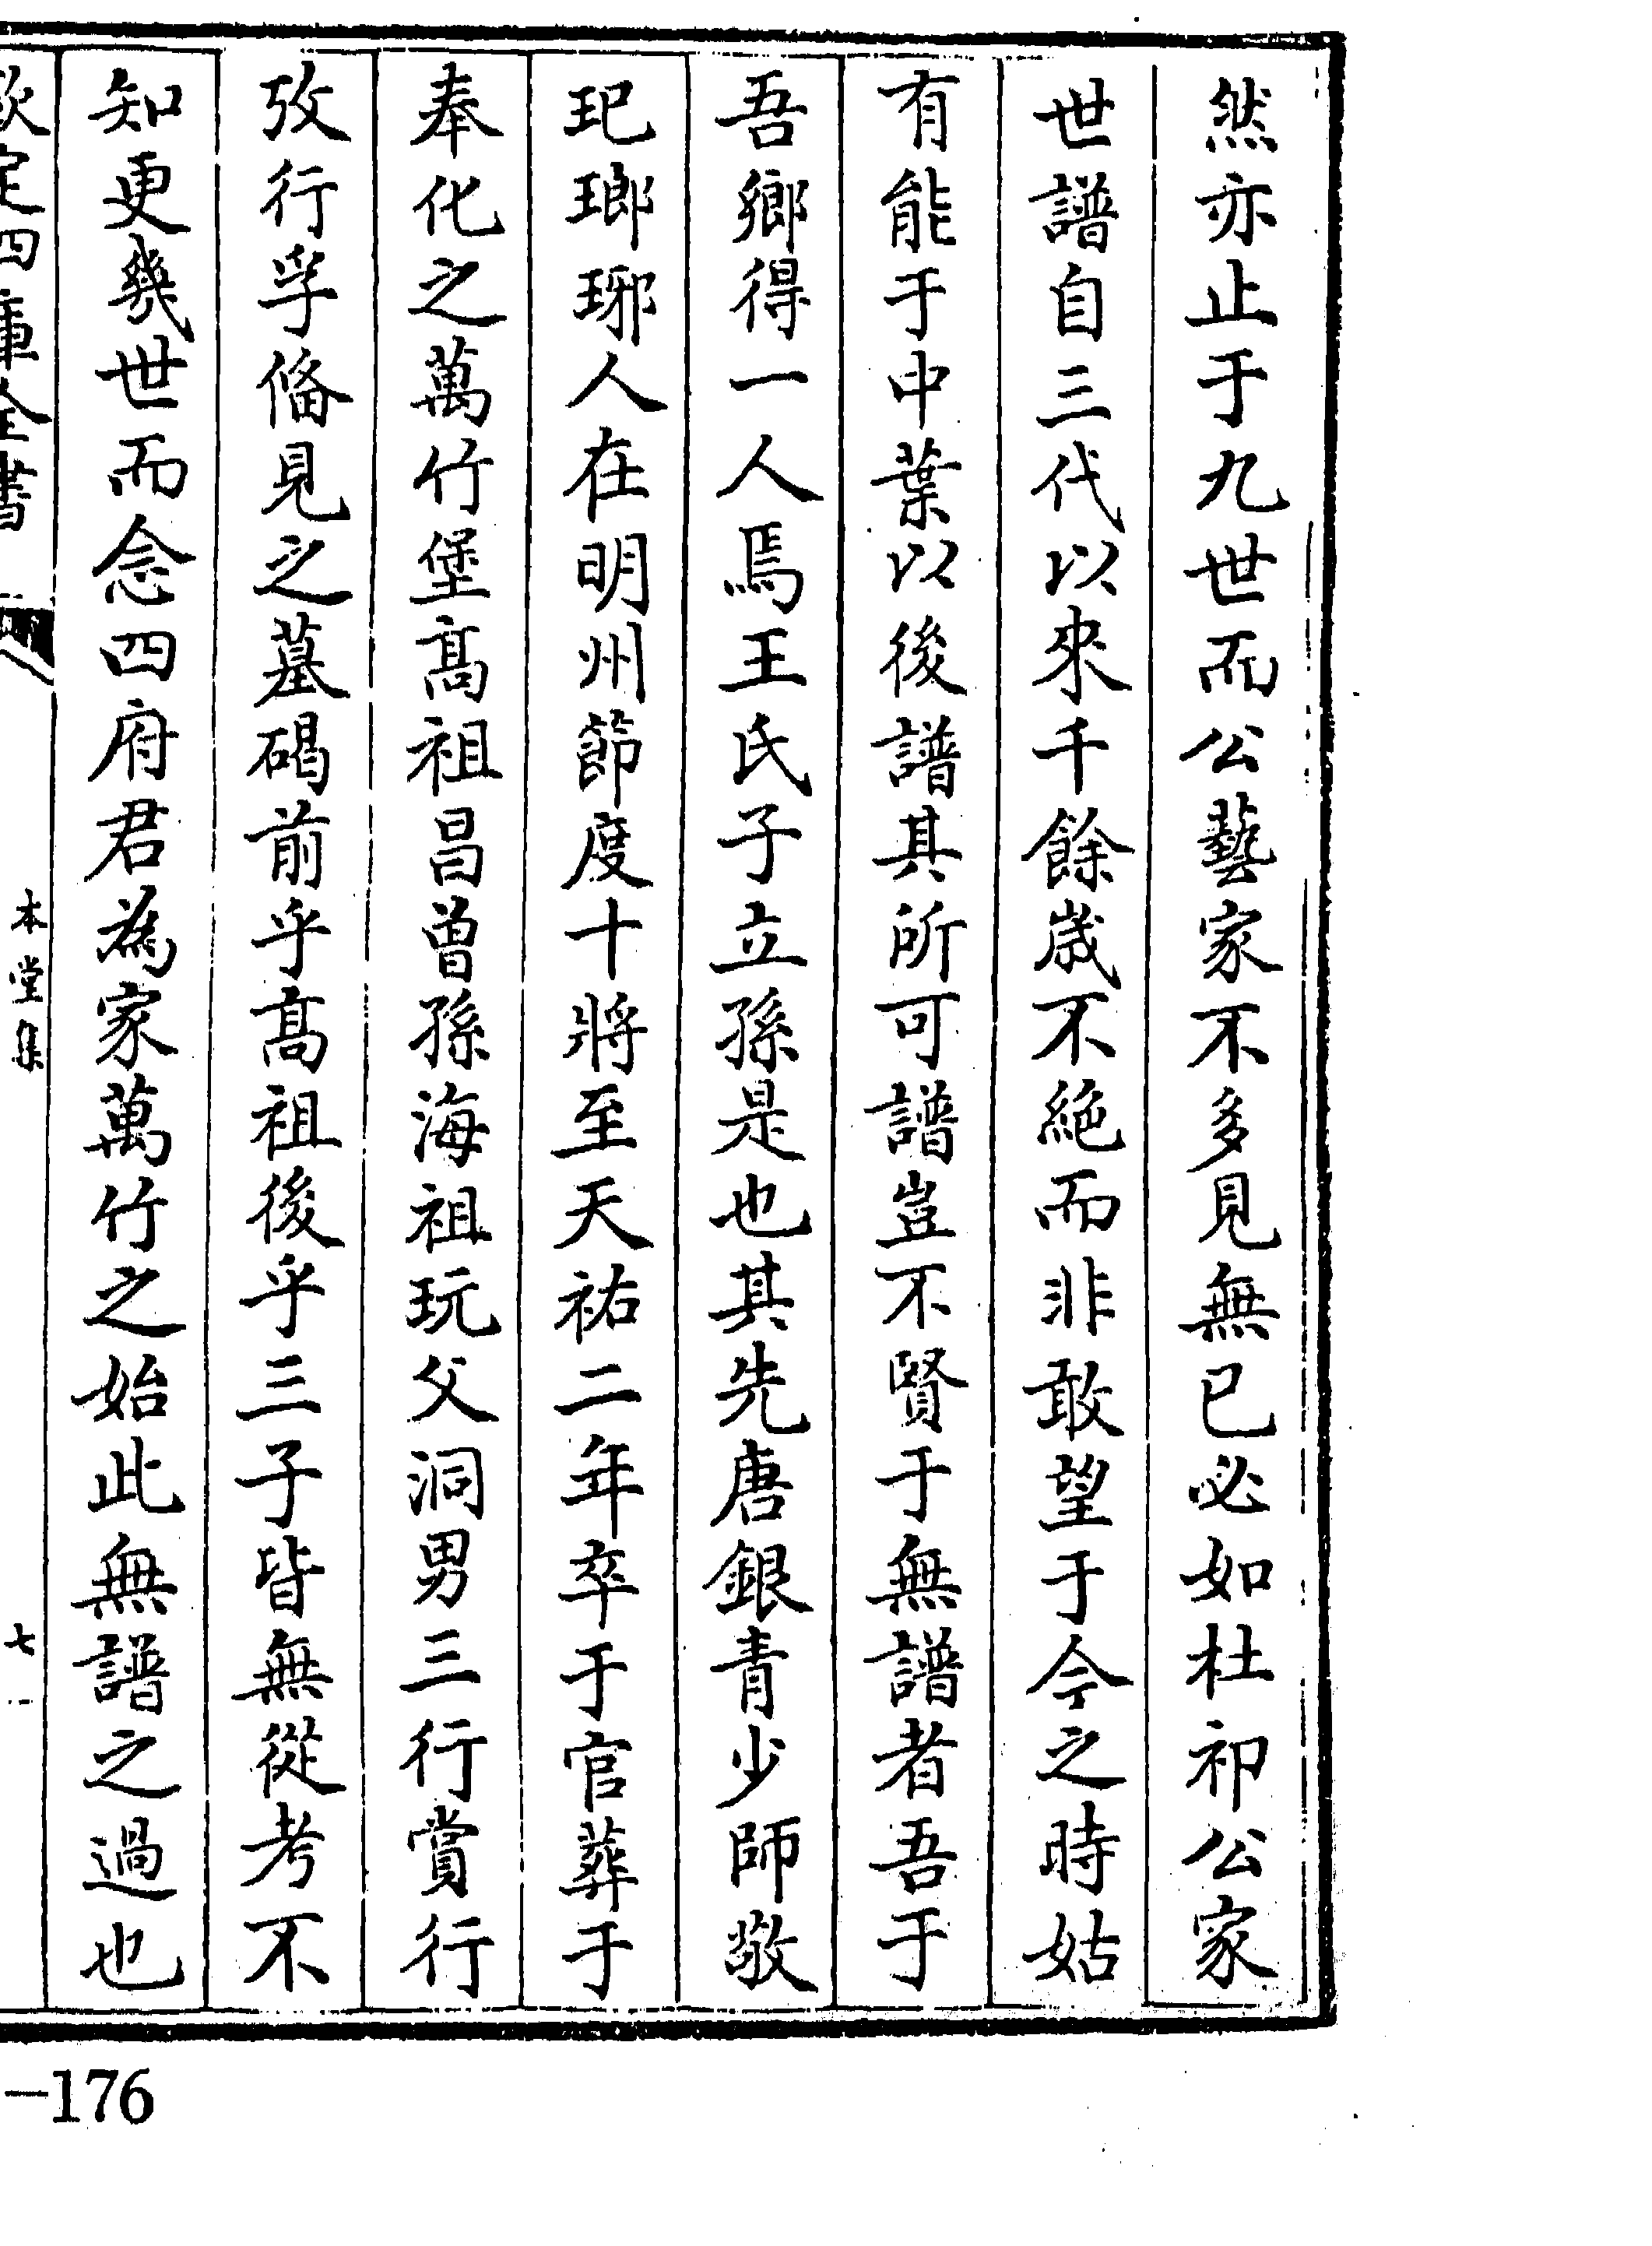 然亦止于九世而公藝家不多見無已必如杜祁公家
世譜自三代以來千餘歳不絶而非敢望于今之時姑
有能于中葉以後譜其所可譜豈不賢于無譜者吾于
吾鄉得一人焉王氏子立孫是也其先唐銀青少師敬
玘瑯琊人在明州節度十將至天祐二年卒于官葬于
奉化之萬竹堡髙祖昌曽孫海祖玩父洞男三行賞行
攷行孚偹見之墓碣前乎髙祖後乎三子皆無從考不
知更幾世而念四府君為家萬竹之始此無譜之過也
欽定四庫全書
本堂集
七
-176